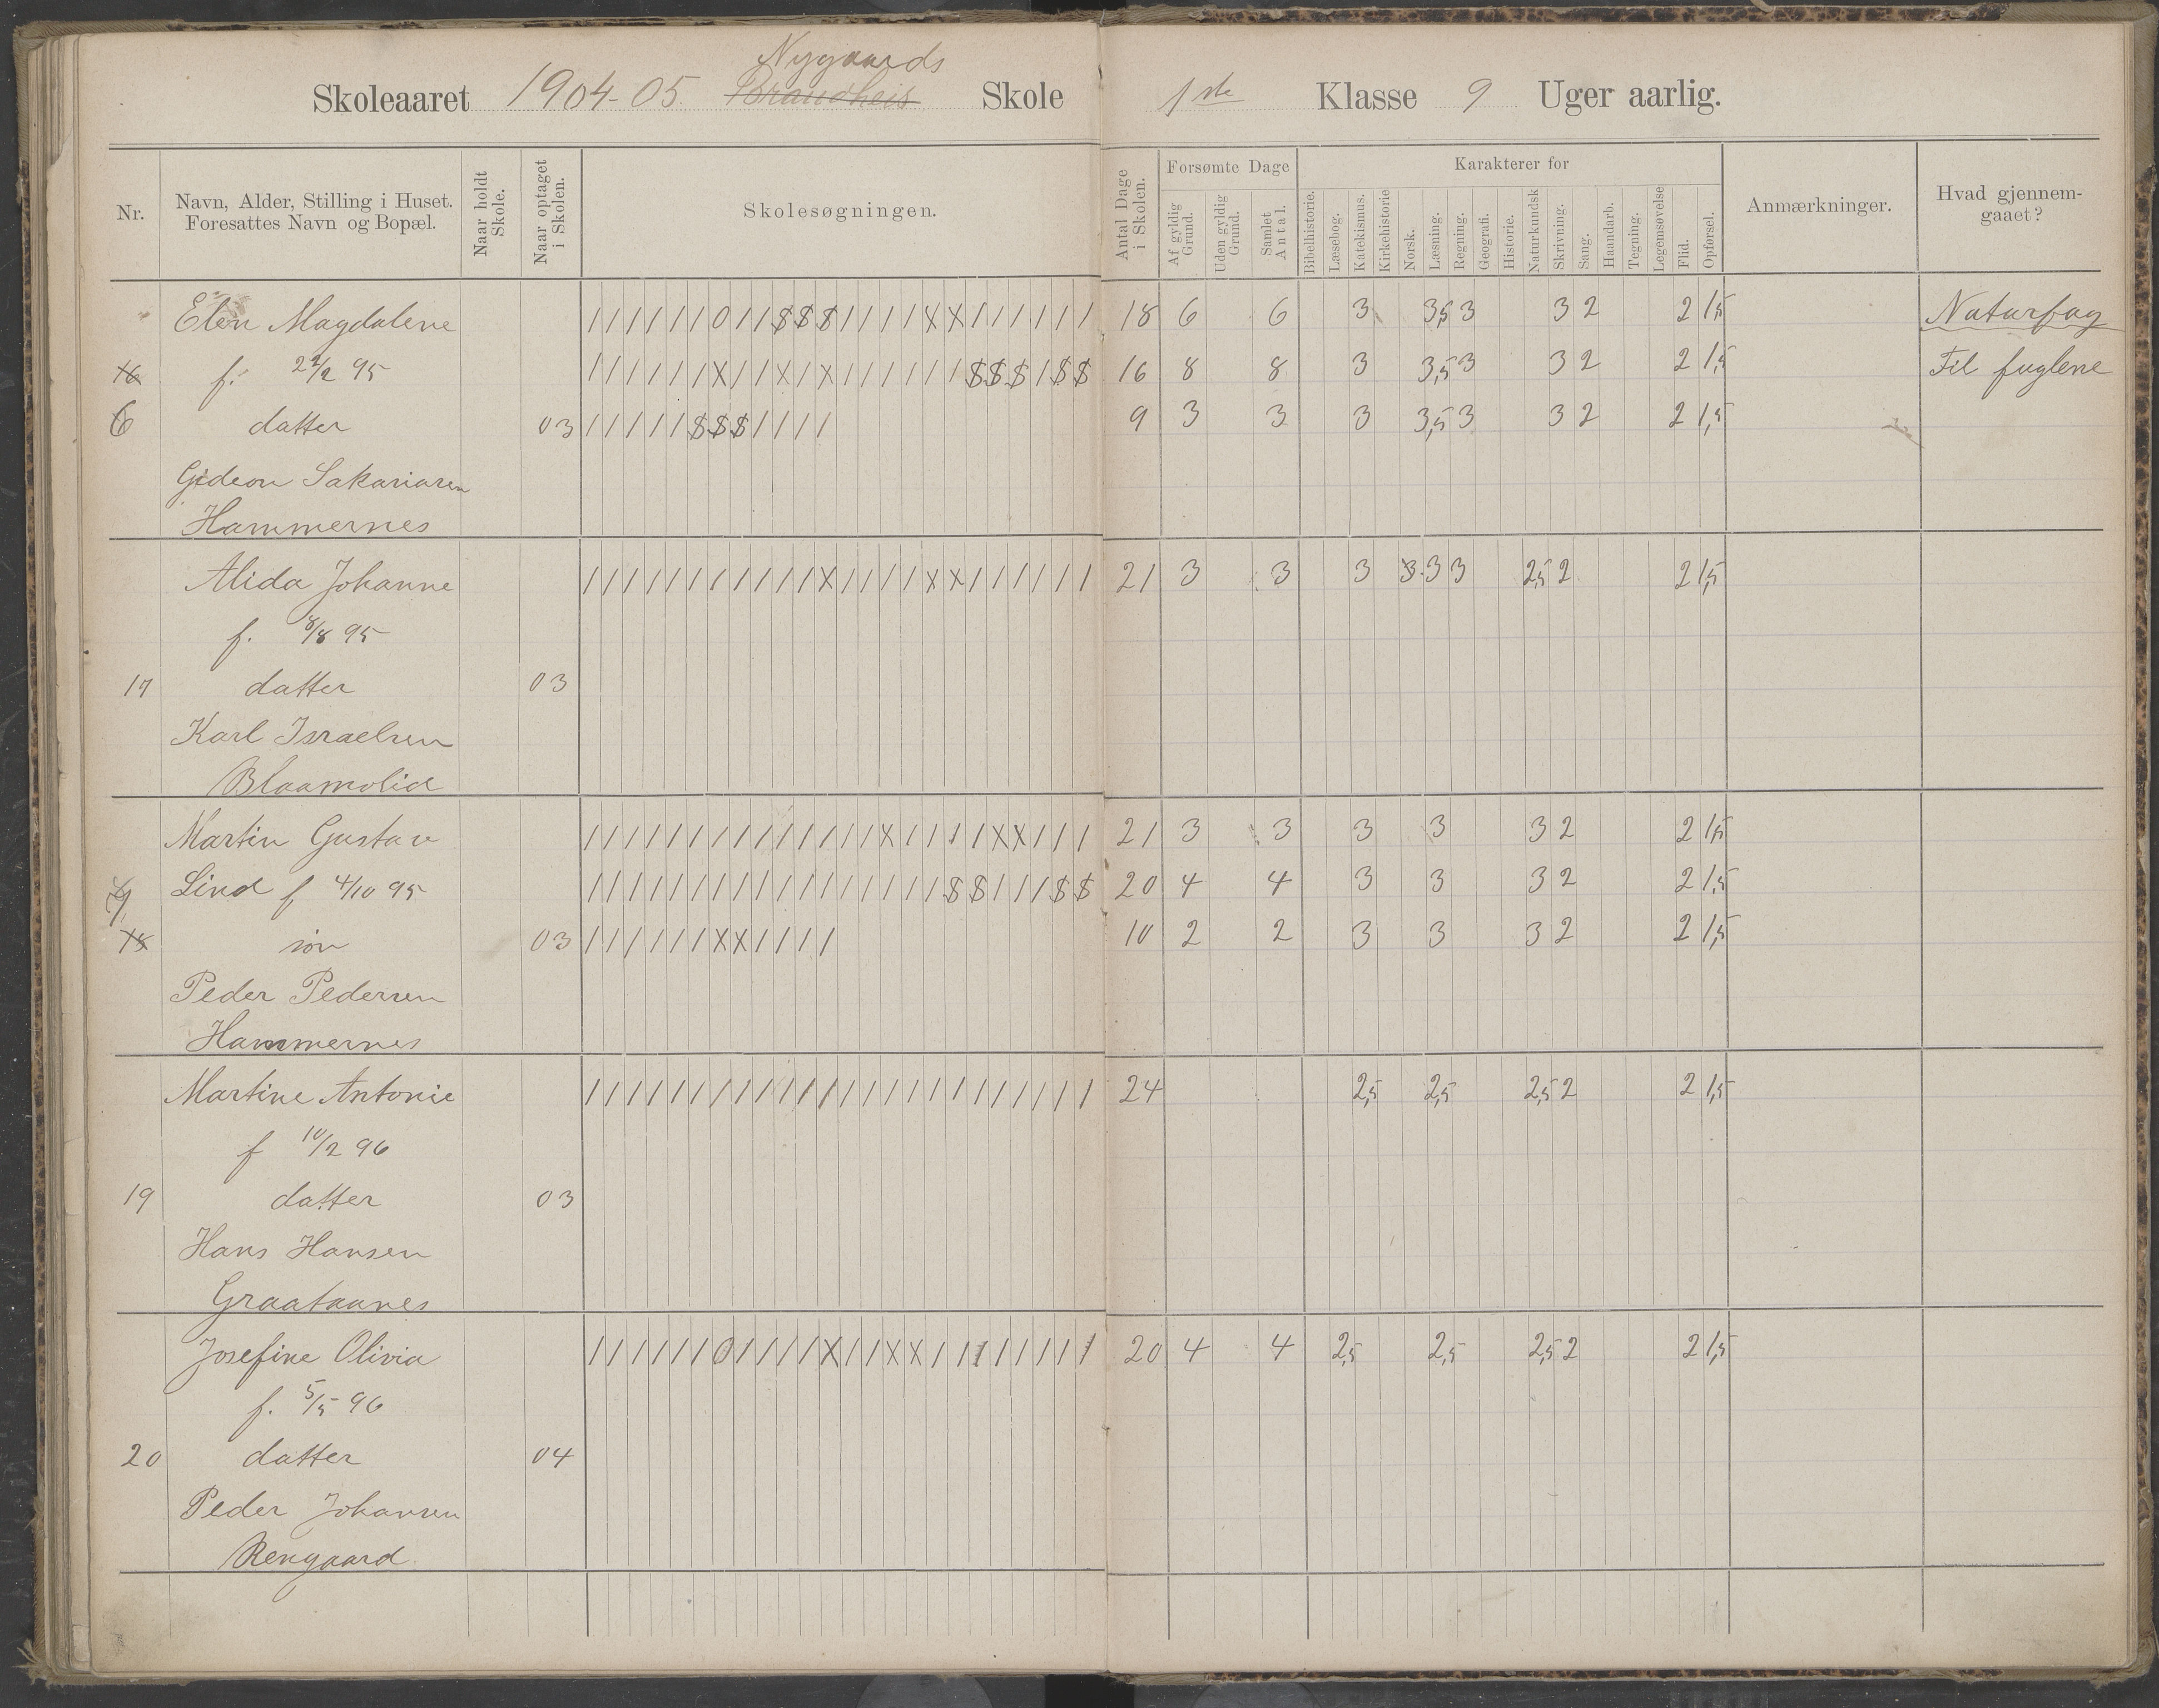 Nygaards
Skoleaaret 1904-05 Brandheis Skole 1ste Klasse 9 Uger aarlig.
Nr.
Navn, Alder, Stilling i Huset.
Foresattes Navn og Bopæl.
Naar holdt Skole.
Naar optaget i Skolen.
Skolesøgningen.
Antal Dage i Skolen.
Forsømte Dage
Af gyldig Grund.
Uden gyldig Grund.
Samlet Antal.
Karakterer for
Bibelhistorie.
Læsebog.
Katekismus.
Kirkehistorie
Norsk.
Læsning.
Regning.
Geografi.
Historie.
Naturkundsk
Skrivning.
Sang.
Haandarb.
Tegning.
Legemsøvelse
Flid.
Opførsel.
Anmærkninger.
Hvad gjennem-
gaaet?
Elen Magdalene / / / / / / 0 / / $ $ $ / / / / X X / / / / / / 18 6 6 3 3,5 3 3 2 2 1,5 Naturfag
16 f. 22/2 95 / / / / / / X / / X / X / / / / / / $ $ $ / $ $ 16 8 8 3 3,5 3 3 2 2 1,5 Til fuglene
6 datter 03 / / / / / $ $ $ / / / / 9 3 3 3 3,5 3 3 2 2 1,5
Gideon Sakariasen
Hammernes
Alida Johanne / / / / / / / / / / / X / / / / X X / / / / / / 21 3 3 3 3 3 3 2,5 2 2 1,5
f. 8/8 95
17 datter 03
Karl Israelsen
Blaamolid
Martin Gustav / / / / / / / / / / / / / / X / / / / X X / / / 21 3 3 3 3 3 2 2 1,5
7 Lind f 4/10 95 / / / / / / / / / / / / / / / / / $ $ / / / $ $ 20 4 4 3 3 3 2 2 1,5
18 søn 03 / / / / / / X X / / / / 10 2 2 3 3 3 2 2 1,5
Peder Pedersen
Hammernes
Martine Antonie / / / / / / / / / / / / / / / / / / / / / / / / 24 2,5 2,5 2,5 2 2 1,5
f 10/2 96
19 datter 03
Hans Hansen
Graataanes
Josefine Olivia / / / / / / 0 / / / / X / / X X / / / / / / / / 20 4 4 2,5 2,5 2,5 2 2 1,5
f. 5/5 96
20 datter 04
Peder Johansen
Rengaard